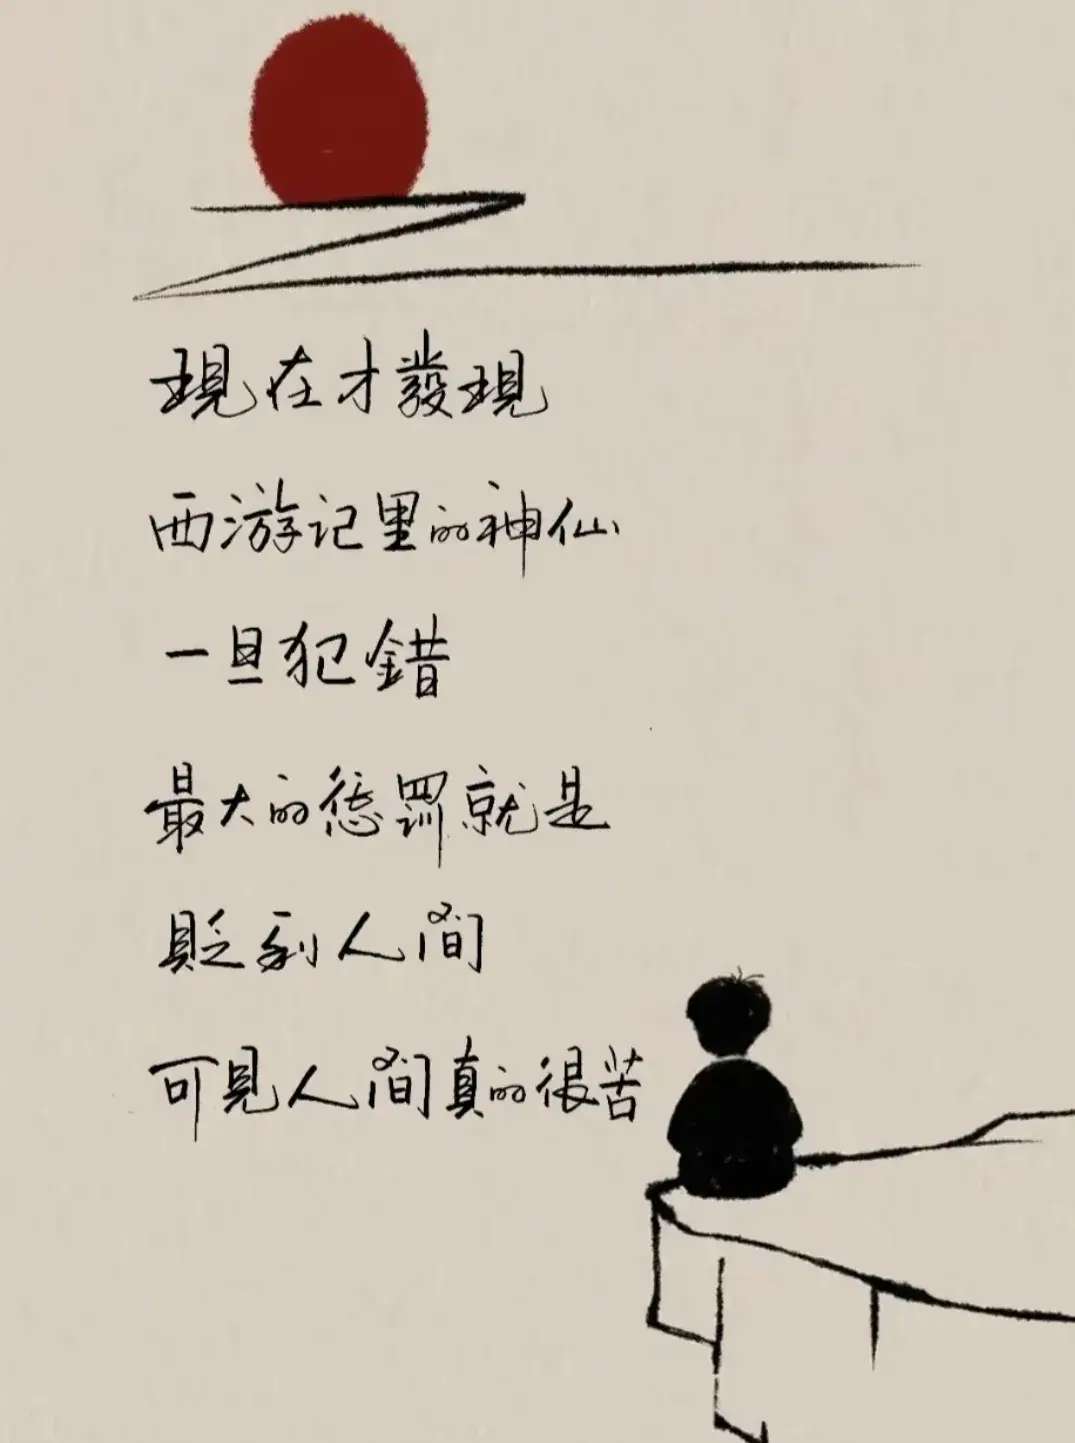 現在才發現
西游记里的神仙
一旦犯錯
最大的惩罚就是
貶到人間
可見人間真的很苦